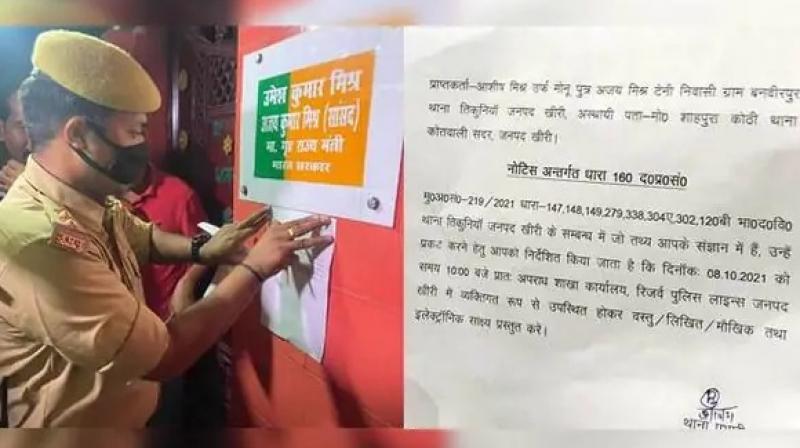 उमेश कुमार मिश्र
अजय कुमार मिश्र (सांसद)
मा. गृह राज्य मंत्री
भारत सरकार
प्राप्तकर्ता-आशीष मिश्र उर्फ मोनू पुत्र अजय मिश्र टेनी निवासी ग्राम बनवीरपुर
थाना तिकुनियाँ जनपद खीरी, अस्थायी पता-मो० शाहपुरा कोठी थाना
कोतवाली सदर, जनपद खीरी।
नोटिस अन्तर्गत धारा 160 द०प्र०सं०
मु०अ०सं०-219/2021 धारा-147,148,149,279,338,304ए,302,120बी भा०द०वि०
थाना तिकुनियाँ जनपद खीरी के सम्बन्ध में जो तथ्य आपके संज्ञान में हैं, उन्हें
प्रकट करने हेतु आपको निर्देशित किया जाता है कि दिनांकः 08.10.2021 को
समय 10:00 बजे प्रातः अपराध शाखा कार्यालय, रिजर्व पुलिस लाइन्स जनपद
खीरी में व्यक्तिगत रूप से उपस्थित होकर वस्तु/लिखित/मौखिक तथा
इलेक्ट्रॉनिक साक्ष्य प्रस्तुत करें।
थाना